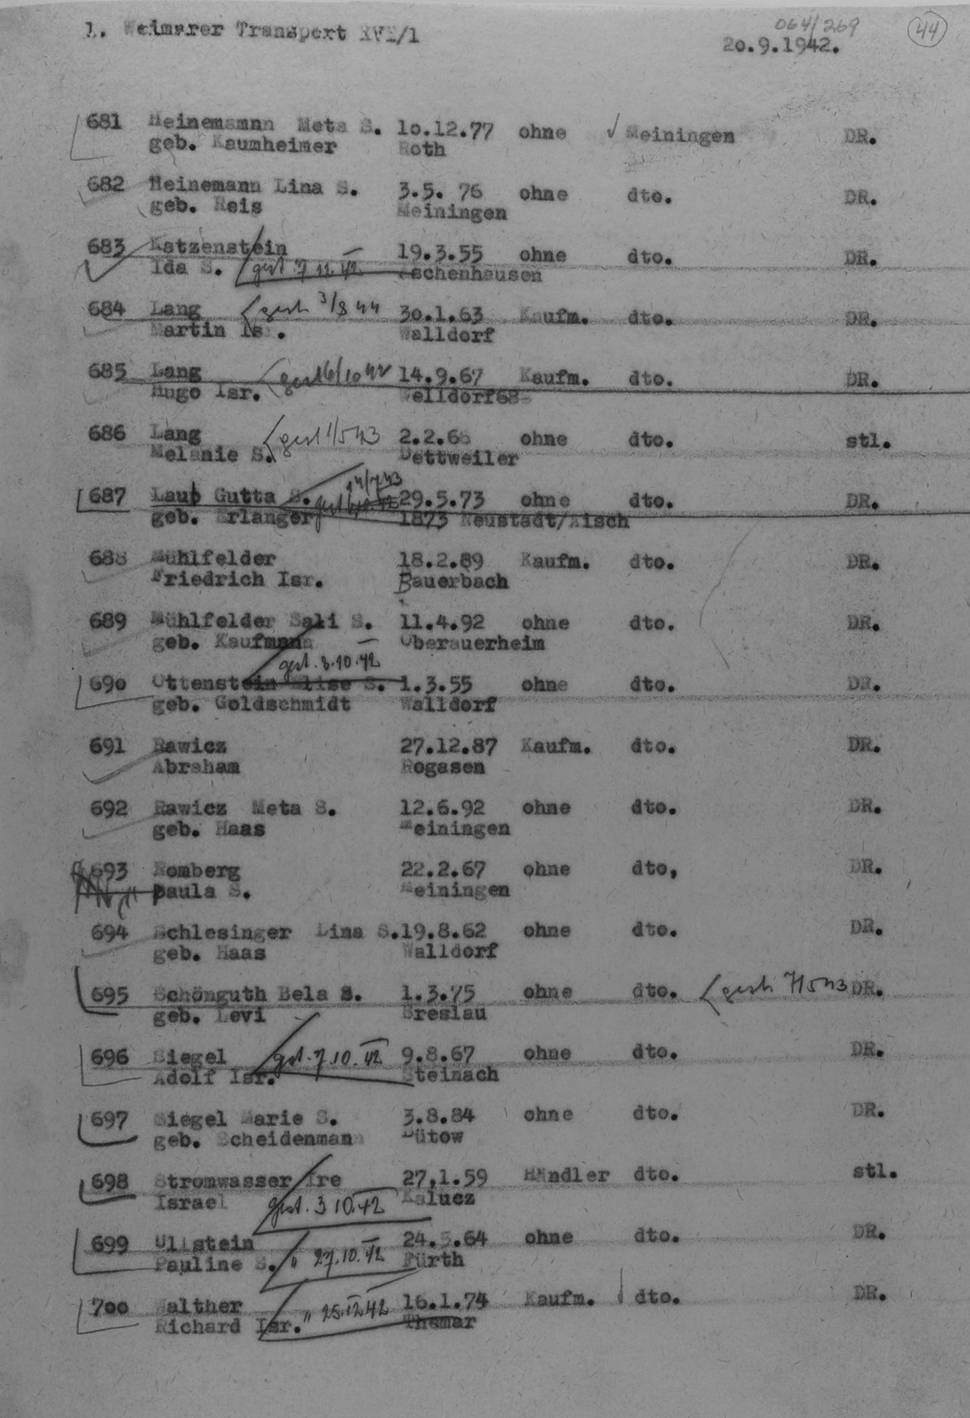 1. Weimarer Transport XVI/1
064/269
44
20.9.1942.
681 Heinemamnn Meta S. 10.12.77 ohne Meiningen DR.
geb. Kaumheimer Roth
682 Heinemann Lina S. 3.5. 76 ohne dto. DR.
geb. Reis Meiningen
683 Katzenstein 19.3.55 ohne dto. DR.
Ida S. gest. 7.12.42 Aschenhausen
684 Lang gest 3/8 44 30.1.63 Kaufm. dto. DR.
Martin Isr. Walldorf
685 Lang gest 6/10 42 14.9.67 Kaufm. dto. DR.
Hugo Isr. Walldorf68
686 Lang gest 1/5 43 2.2.68 ohne dto. stl.
Melanie S. Dettweiler
14/7.43
687 Laub Gutta S. 29.5.73 ohne dto. DR.
geb. Erlanger 1873 Neustadt/Aisch
688 Mühlfelder 18.2.89 Kaufm. dto. DR.
Friedrich Isr. Bauerbach
689 Mühlfelder Sali S. 11.4.92 ohne dto. DR.
geb. Kaufmann Oberauerheim
gest. 3.10.42
690 Ottenstein Elise S. 1.3.55 ohne dto. DR.
geb. Goldschmidt Walldorf
691 Rawicz 27.12.87 Kaufm. dto. DR.
Abraham Rogasen
692 Rawicz Meta S. 12.6.92 ohne dto. DR.
geb. Haas Meiningen
693 Romberg 22.2.67 ohne dto, DR.
paula S. Meiningen
694 Schlesinger Lina S. 19.8.62 ohne dto. DR.
geb. Haas Walldorf
695 Schönguth Bela S. 1.3.75 ohne dto. gest 7/5 43 DR.
geb. Levi Breslau
696 Siegel gest. 7.10.42 9.8.67 ohne dto. DR.
Adolf Isr. Steinach
697 Siegel Marie S. 3.8.84 ohne dto. DR.
geb. Scheidenmann Bütow
698 Stromwasser Ire 27.1.59 Händler dto. stl.
Israel gest. 3 10.42 Kalucz
699 Ullstein 24.5.64 ohne dto. DR.
Pauline S. " 27.10.42 Fürth
700 Walther 16.1.74 Kaufm. dto. DR.
Richard Isr. " 25.XII 42 Themar